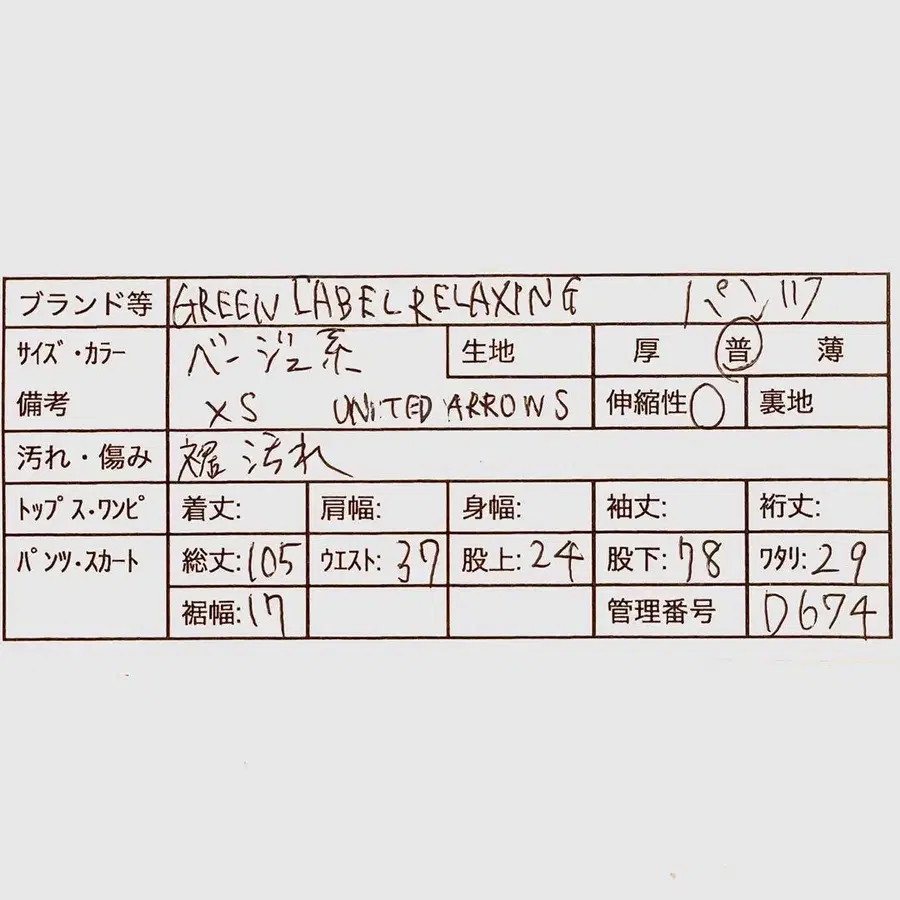 ブランド等 GREEN LABEL RELAXING パンツ
サイズ・カラー ベージュ系 生地 厚 普 薄
備考 XS UNITED ARROWS 伸縮性○ 裏地
汚れ・傷み 裾汚れ
トップス・ワンピ 着丈: 肩幅: 身幅: 袖丈: 裄丈:
パンツ・スカート 総丈:105 ウエスト:37 股上:24 股下:78 ワタリ:29
裾幅:17 管理番号 D674